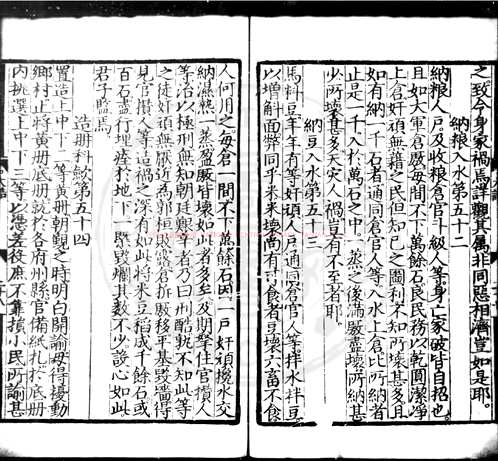 之致今身家禍焉詳觀其属非同惡相濟豈如是耶
納粮入水第五十二
納粮人戶及收粮倉官斗級人等身亡家破皆自招也
且如大軍倉廒每間不下萬餘石良民務以乾圓潔淨
上倉奸頑無藉之民但知已之圖利不知所壞甚多且
如有納一千石者通同倉官人等入水上倉比所納者
止是一千入於萬石之中一蒸之後滿廒盡壞所納甚
少所壞甚多天災人禍豈有不至者耶
納豆入水第五十三
馬料豆年年有等納豆奸頑人戶通同倉官人等拌水豆
以增觧面弊同乎米米壞尚有可食者豆壞六畜不食
人何用之每倉一間不下萬餘石因一戶奸頑攪水交
納濕熱一蒸盈廒皆壞如此者多至及期拏住官攢人
等治以極刑無知朝廷艱辛者乃曰刑酷孰不知此等
之徒奸頑無厭近為郭桓敗露倉拆廒移平基毀墻得
見官攢人等造禍之深有如此將米豆稻成千餘石或
百石盡行埋瘞於地下一槩毀爛其數不少設心如此
君子監焉
造册科歛第五十四
置造上中下三等黄册朝覲之時明白開諭毋得擾動
鄉村止將黄册底册就於各府州縣官備紙札於底册
内挑選上中下三等以憑差役庶不靠損小民所諭甚